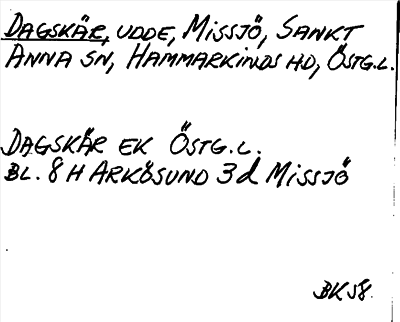 DAGSKÄR, UDDE, MISSJÖ, SANKT
ANNA SN, HAMMARKINDS HD, ÖSTG.L.
DAGSKÄR EK ÖSTG.L.
BL. 8 H ARKÖSUND 3d MISSJÖ
BK 58.